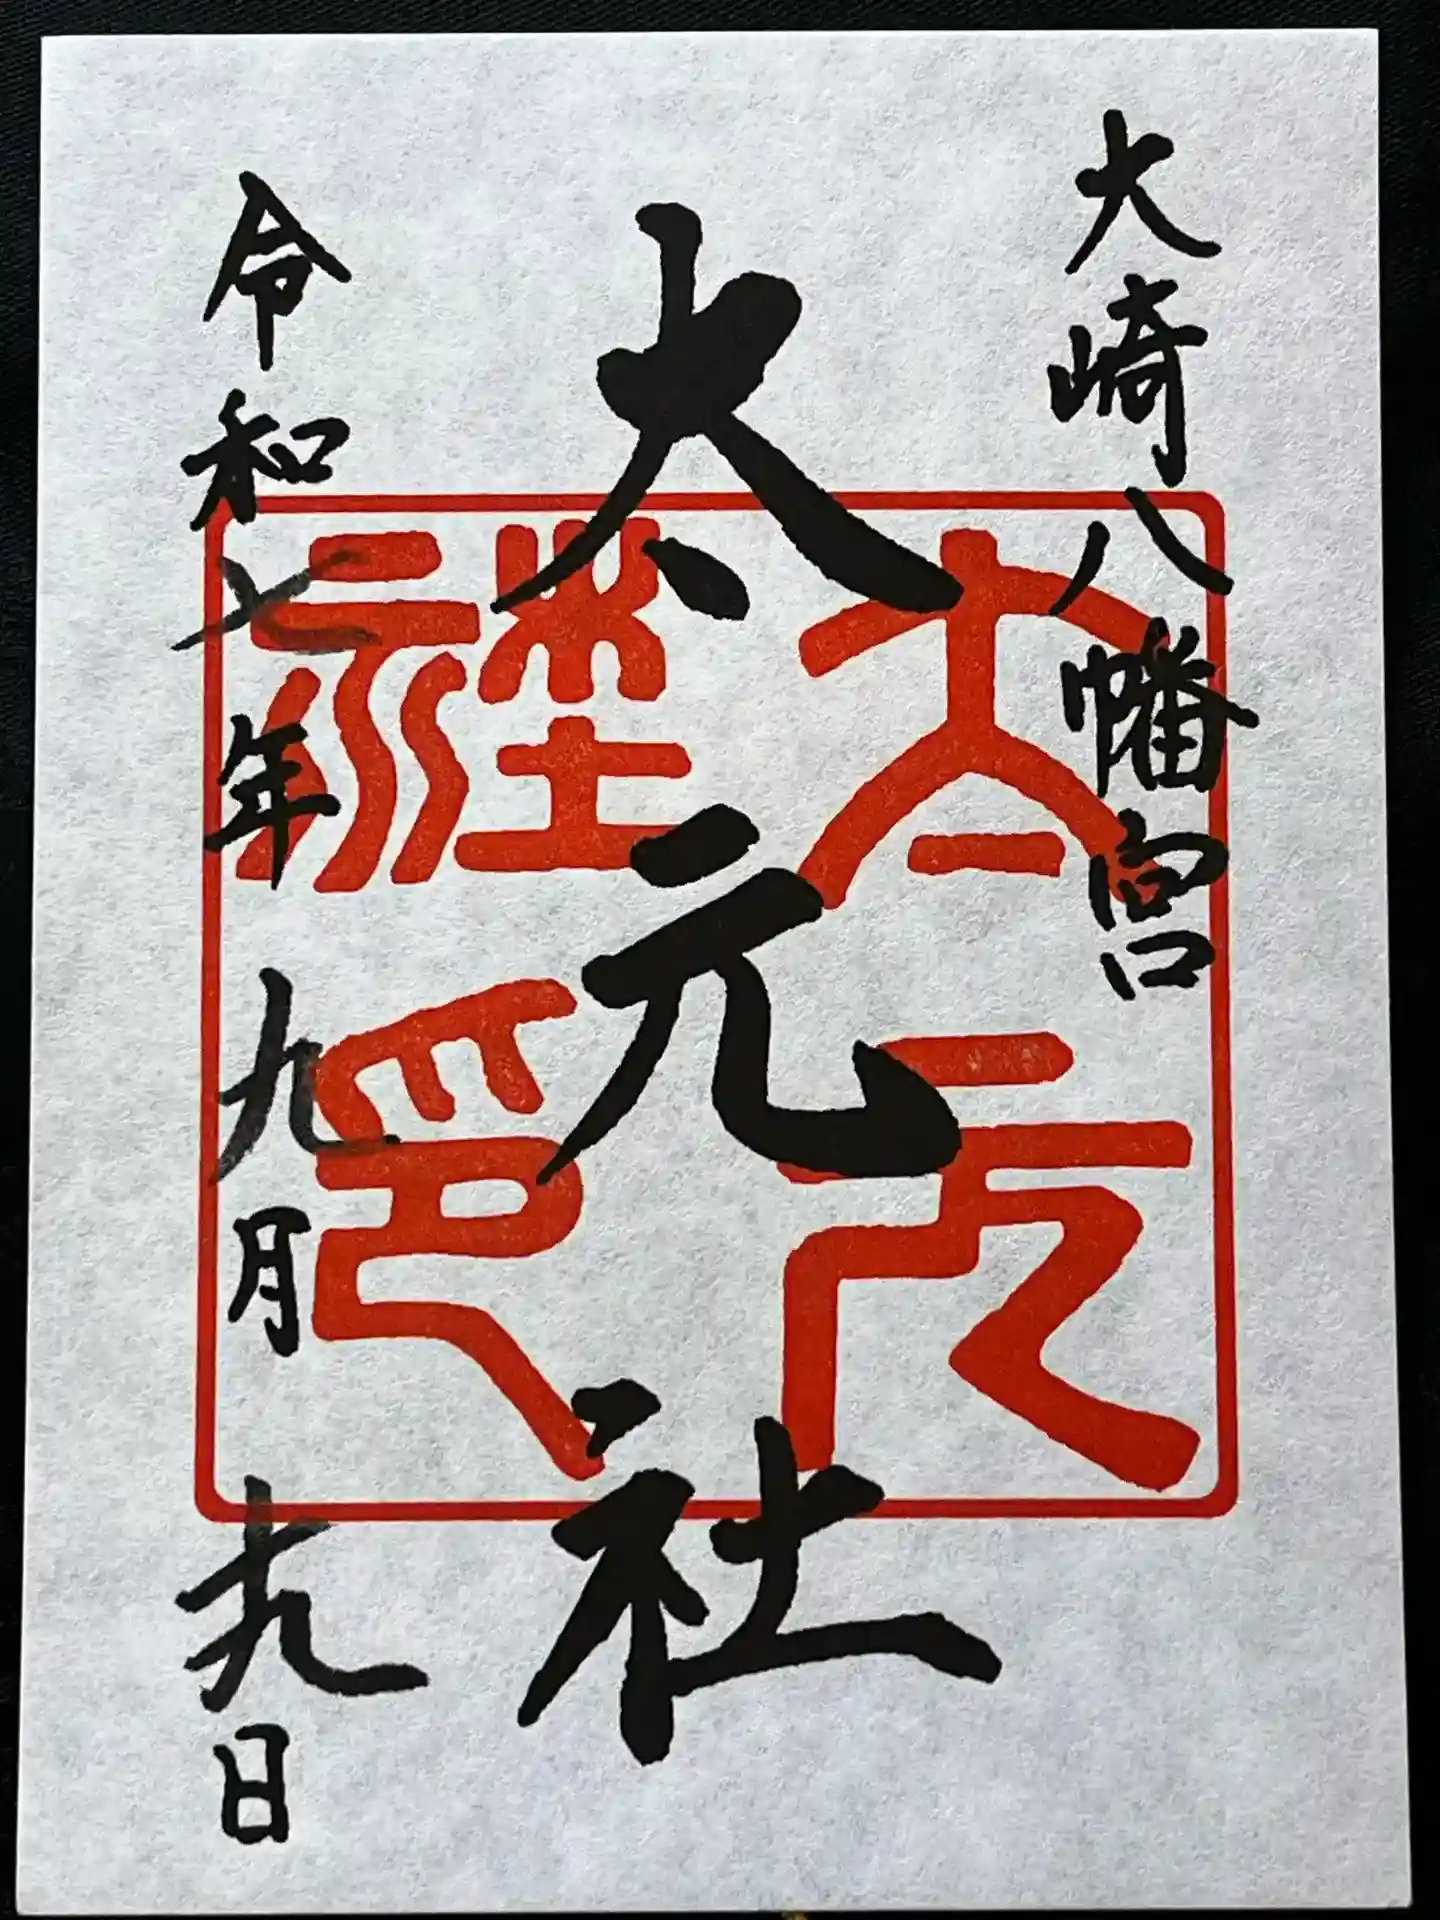 大崎八幡宮
太元社
令和七年九月十九日
太元
社印